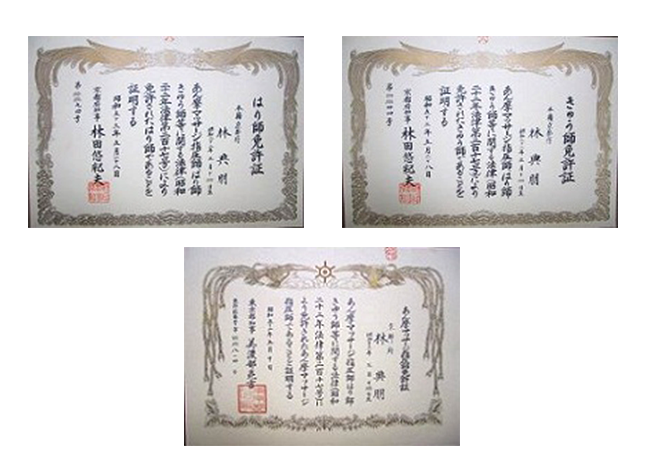 はり師免許証
本籍
林 典朋
あん摩マツサージ指圧師はり師
きゆう師等に関する法律(昭和
二十二年法律第二百十七号)により
免許されたはり師であることを
証明する
昭和五十三年五月二十八日
京都府知事 林田悠紀夫
第 号
きゆう師免許証
本籍
林 典朋
あん摩マツサージ指圧師はり師
きゆう師等に関する法律(昭和
二十二年法律第二百十七号)により
免許されたきゆう師であることを
証明する
昭和五十三年五月二十八日
京都府知事 林田悠紀夫
第 号
あん摩マツサージ指圧師免許証
林 典朋
あん摩マツサージ指圧師はり師
きゆう師等に関する法律(昭和
二十二年法律第二百十七号)に
より免許されたあん摩マツサージ
指圧師であることを証明する
東京都知事 美濃部亮吉